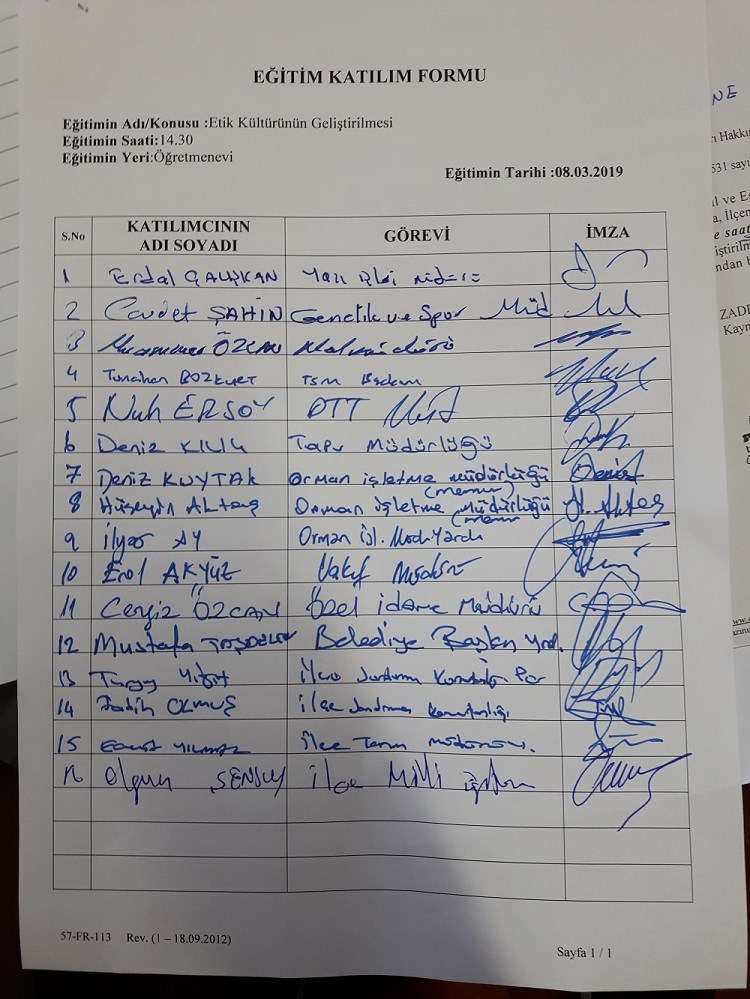 EĞİTİM KATILIM FORMU
Eğitimin Adı/Konusu :Etik Kültürünün Geliştirilmesi
Eğitimin Saati:14.30
Eğitimin Yeri:Öğretmenevi
Eğitimin Tarihi :08.03.2019
S.No KATILIMCININ ADI SOYADI GÖREVİ İMZA
1 Erdal ÇALIŞKAN Yazı işleri
2 Cevdet ŞAHİN Gençlik ve Spor Müd
3 Muammer ÖZCAN Malmüdürü
4 Tunahan BOZKURT TSM
5 Nuh ERSOY PTT
6 Deniz KILIÇ Tapu Müdürlüğü
7 Deniz KUYTAK Orman işletme müdürlüğü (memur) Deniz
8 Hüseyin Aktaş Orman işletme müdürlüğü (memur) H. Aktaş
9 İlyas AY Orman İşl.
10 Erol AKYÜZ Vakıf Müdürü
11 Cengiz ÖZCAN Özel idare Müdürü
12 Mustafa Belediye Başkan Yrd.
13 Yiğit ilçe Jandarma
14 Fatih OLMUŞ ilçe Jandarma Komutanlığı
15 YILMAZ ilçe Tarım
Olgun ŞENSOY ilçe Milli
57-FR-113 Rev. (1 – 18.09.2012)
Sayfa 1 / 1
NE
Hakkın
531 sayı
e saat
ZADE
Kayn